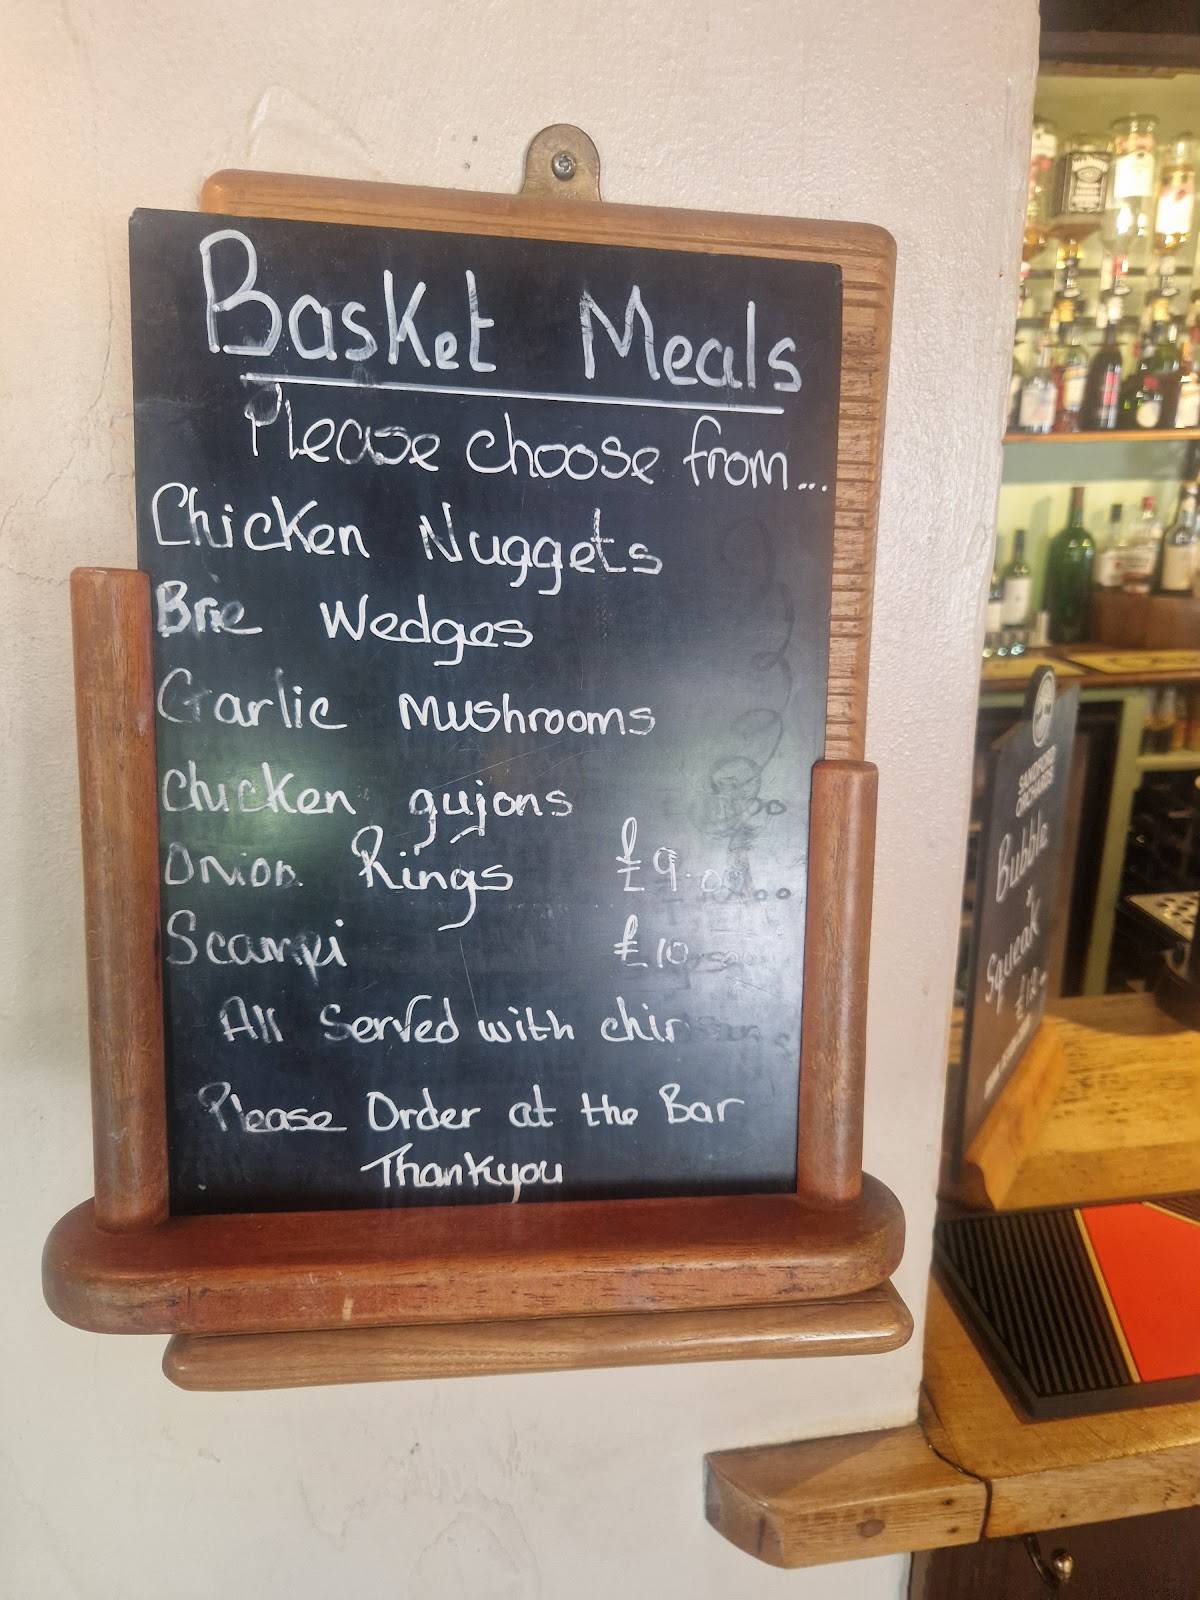 Basket Meals
Please choose from...
Chicken Nuggets
Brie Wedges
Garlic Mushrooms
Chicken gujons
Onion Rings £9.00
Scampi £10
All Served with chip
Please Order at the Bar
Thankyou
SANDFORD
ORCHARDS
Bubble
Squeak